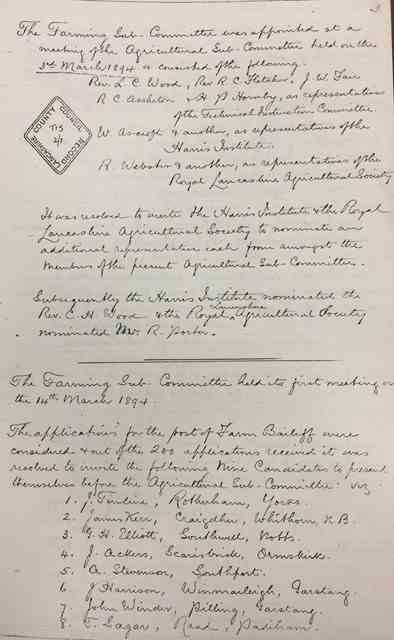 3
The Farming Sub-Committee was appointed at a
meeting of the Agricultural Sub-Committee held on the
3rd March 1894 & consisted of the following.
Rev. L. C. Wood, Rev R C Fletcher, J. W. Fair
R. C. Assheton & H. P. Hornby, as representatives
of the Technical Instruction Committee
W. Ascroft & another, as representatives of the
Harris Institute.
R. Webster & another, as representatives of the
Royal Lancashire Agricultural Society
LANCASHIRE COUNTY COUNCIL RECORD
It was resolved to invite the Harris Institute & the Royal
Lancashire Agricultural Society to nominate an
additional representative each from amongst the
members of the present Agricultural Sub-Committee.
Subsequently the Harris Institute nominated the
Rev. C. H. Wood & the Royal Lancashire Agricultural Society
nominated Mr. R. Porter.
The Farming Sub-Committee held its first meeting on
the 14th March 1894.
The applications for the post of Farm Bailiff were
considered & out of the 200 applications received it was
resolved to invite the following Nine Candidates to present
themselves before the Agricultural Sub-Committee: viz
1. J. Rotherham, Yorks.
2. James Kerr, Whithorn, N.B.
3. G. H. Elliott, Southwell, Notts.
4. J. Ackers, Scarisbrick, Ormskirk.
5. A. Stevenson, Southport.
6. J Harrison, Winmarleigh, Garstang.
7. John Winder, Pilling, Garstang.
8. T. Sagar, Read, Padiham.